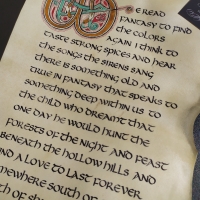 WE READ
FANTASY TO FIND
THE COLORS
AGAIN I THINK TO
TASTE STRONG SPICES AND HEAR
THE SONGS THE SIRENS SANG
THERE IS SOMETHING OLD AND
TRUE IN FANTASY THAT SPEAKS TO
SOMETHING DEEP WITHIN US TO
THE CHILD WHO DREAMT THAT
ONE DAY HE WOULD HUNT THE
FORESTS OF THE NIGHT AND FEAST
BENEATH THE HOLLOW HILLS AND
FIND A LOVE TO LAST FOREVER
SOMEWHERE SOUTH OF